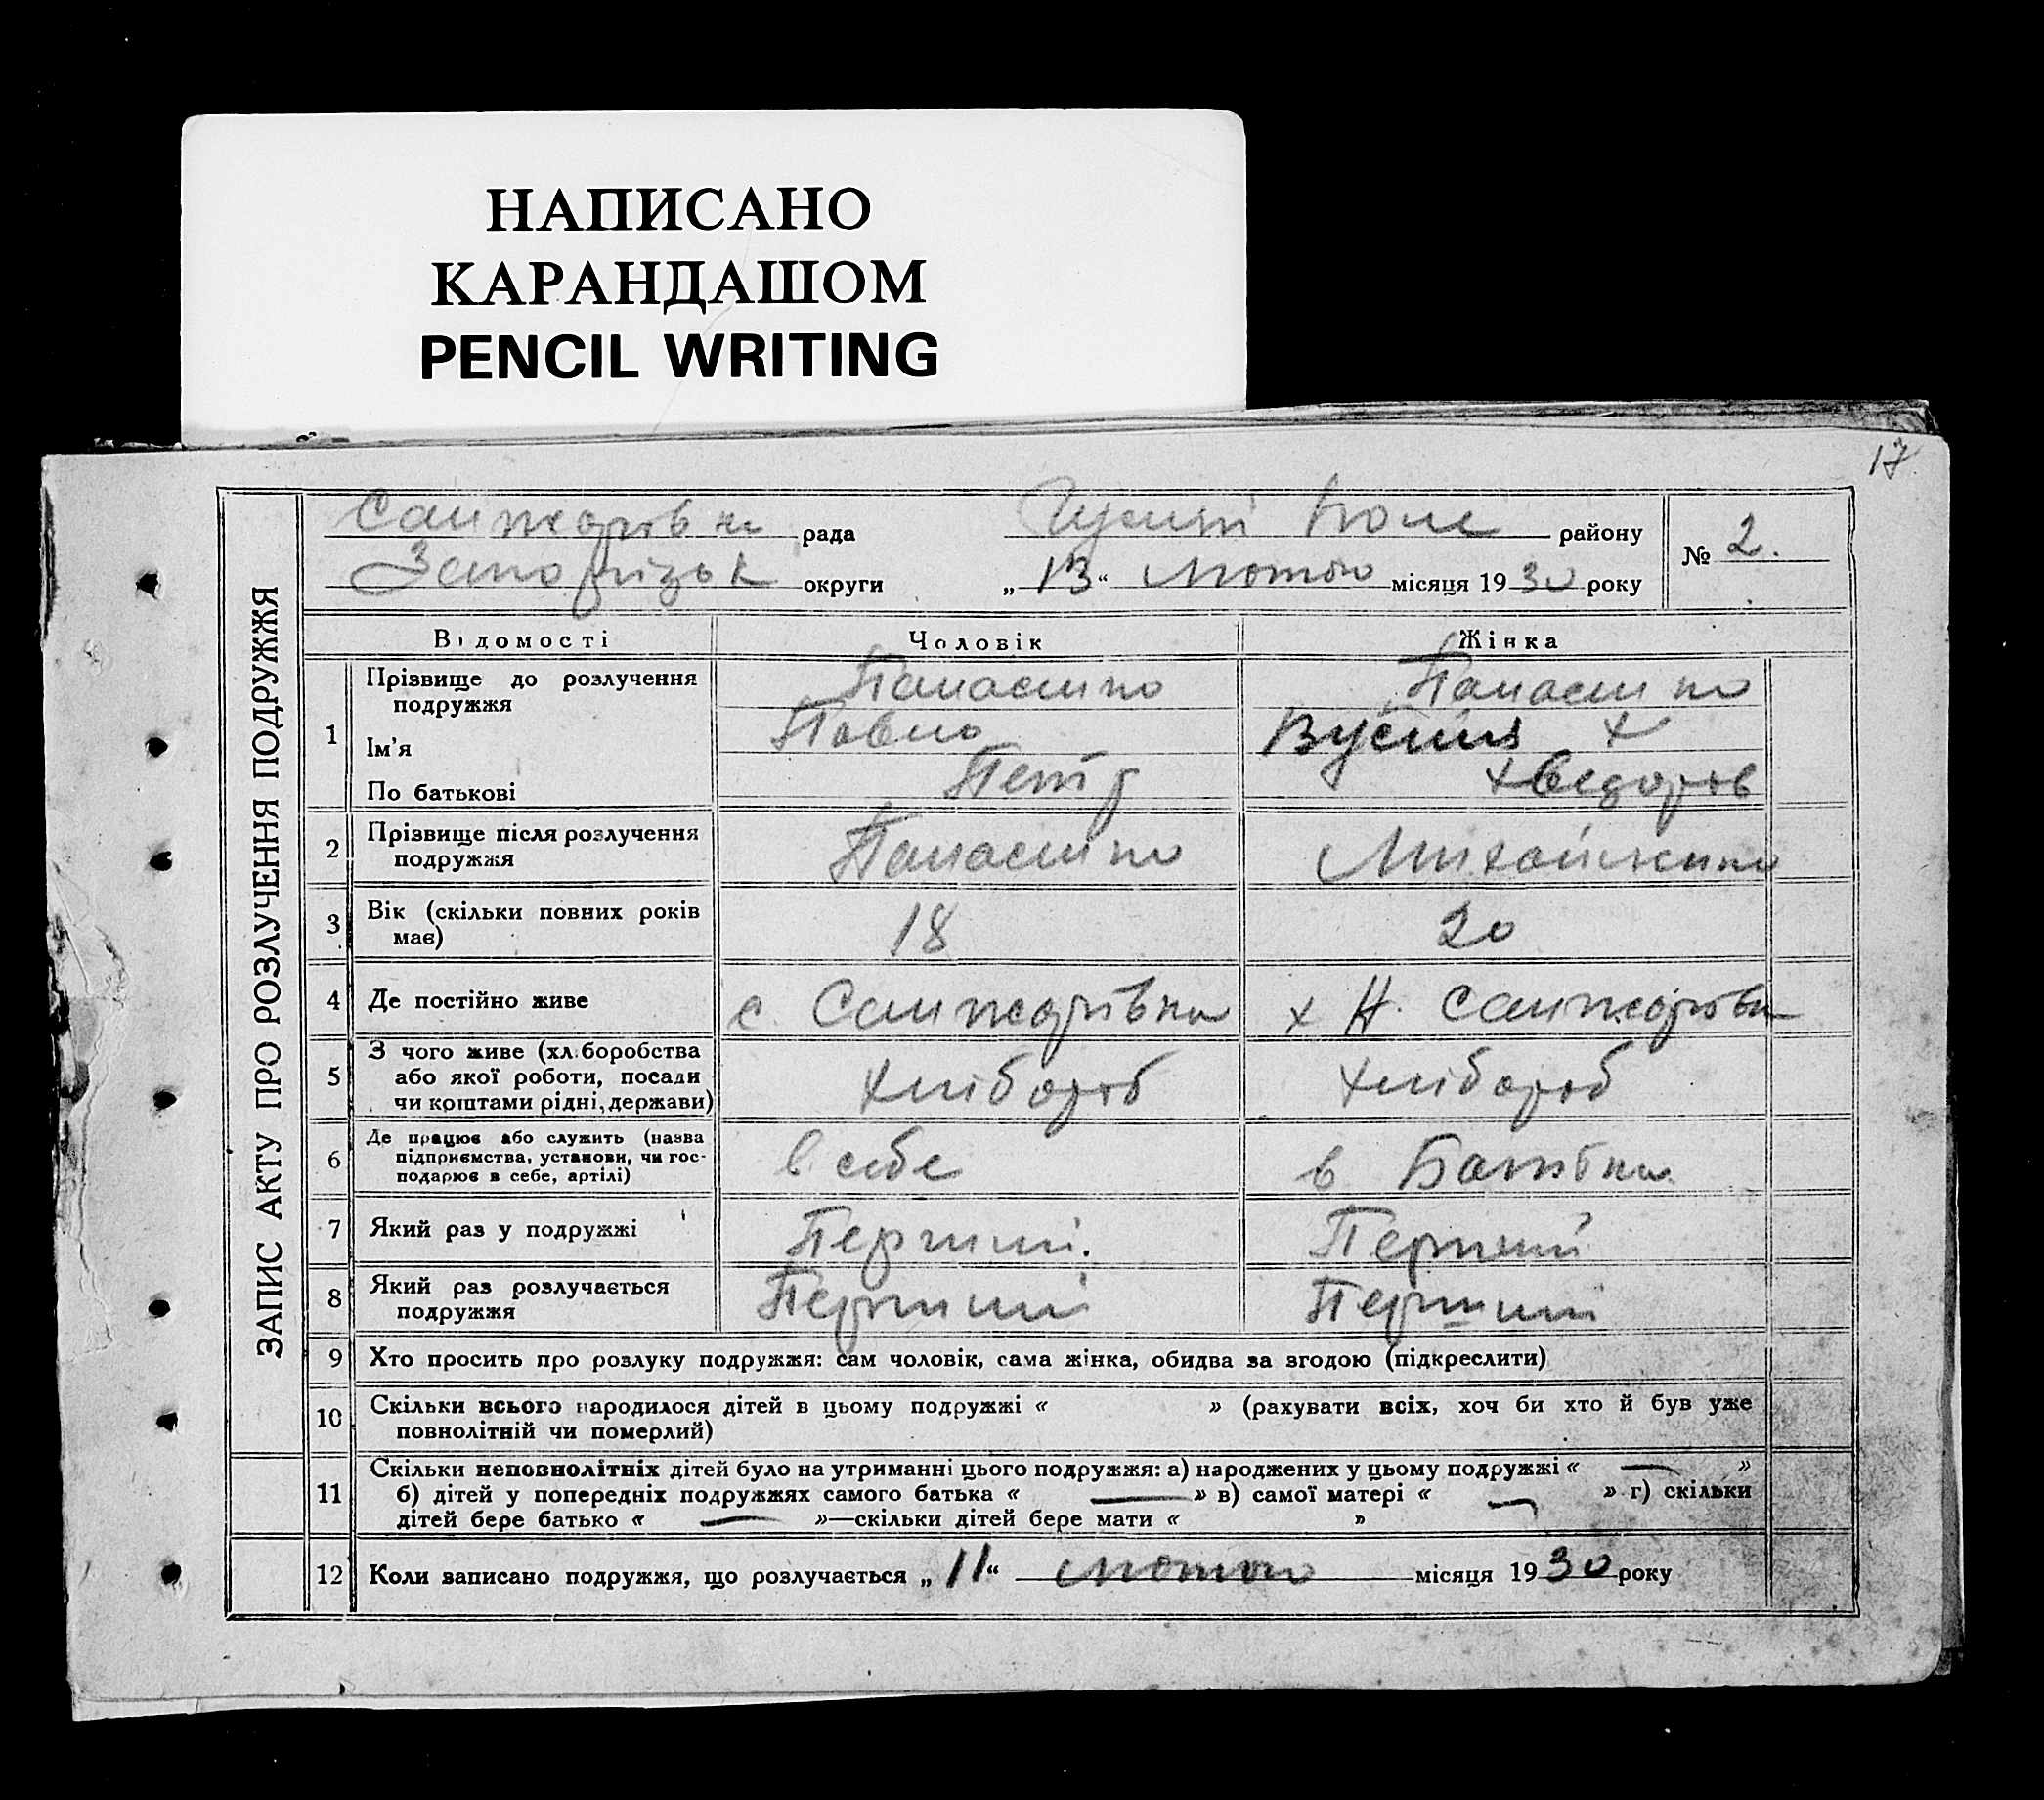 НАПИСАНО
КАРАНДАШОМ
PENCIL WRITING
17
ЗАПИС АКТУ ПРО РОЗЛУЧЕННЯ ПОДРУЖЖЯ
Санжарівка рада Поле району
Запорізьк округи „13“ Лютого місяця 1930 року
№ 2.
Відомості Чоловік Жінка
1 Прізвище до розлучення подружжя Панасенко Панасенко
Ім'я Павло
По батькові Петр Хведоров
2 Прізвище після розлучення подружжя Панасенко
3 Вік (скільки повних років має) 18 20
4 Де постійно живе с. Санжарівка х Н. Санжарівка
5 З чого живе (хліборобства або якої роботи, посади чи коштами рідні, держави) Хлібороб Хлібороб
6 Де працює або служить (назва підприємства, установи, чи господарює в себе, артілі) в себе в Батька
7 Який раз у подружжі Перший. Перший
8 Який раз розлучається подружжя Перший Перший
9 Хто просить про розлуку подружжя: сам чоловік, сама жінка, обидва за згодою (підкреслити)
10 Скільки всього народилося дітей в цьому подружжі « » (рахувати всіх, хоч би хто й був уже
повнолітній чи померлий)
11 Скільки неповнолітніх дітей було на утриманні цього подружжя: а) народжених у цьому подружжі « — »
б) дітей у попередніх подружжях самого батька « — » в) самої матері « — » г) скільки
дітей бере батько « — »—скільки дітей бере мати « »
12 Коли записано подружжя, що розлучається „11“ Лютого місяця 1930 року